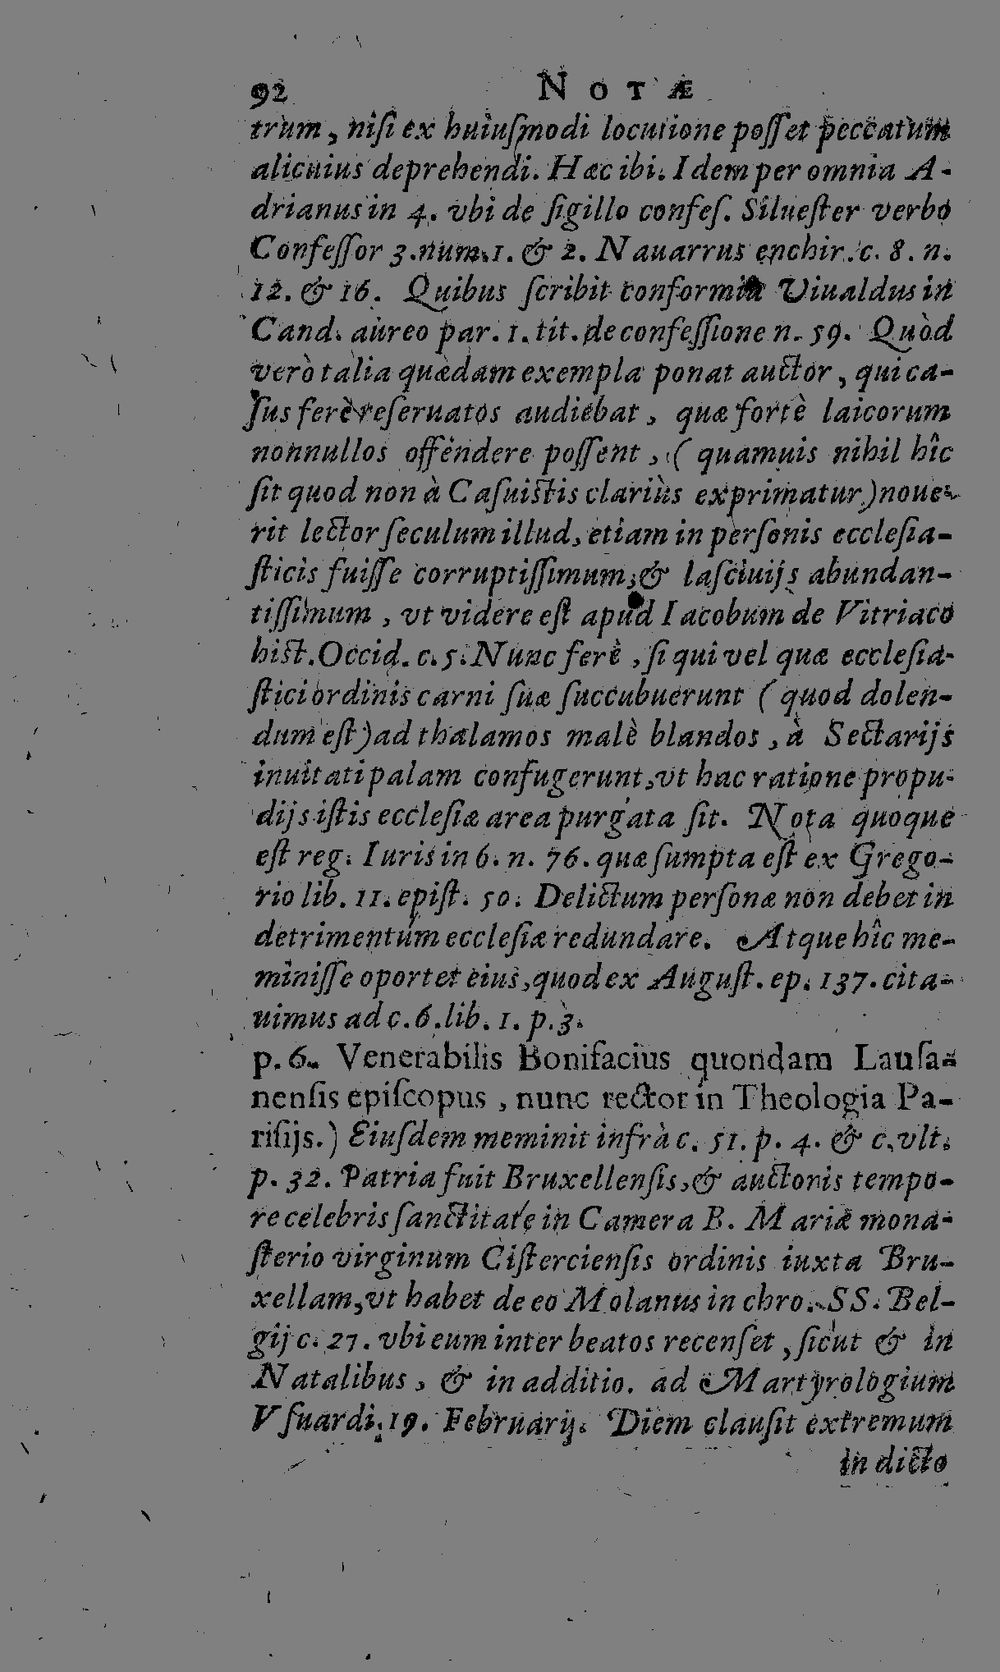 92 NOTÆ
trum, niſi ex huiuſmodi locutione poſſet peccatum
alicuius deprehendi. Hæc ibi. Idem per omnia A-
drianus in 4. vbi de ſigillo confeſ. Silueſter verbo
Confeſſor 3. num. 1. & 2. Nauarrus enchir. c. 8. n.
12. & 16. Quibus ſcribit conformia Viualdus in
Cand. aureo par. 1. tit. de confeſſione n. 59. Quòd
verò talia quædam exempla ponat auctor, qui ca-
ſus ferè reſeruatos audiebat, quæ fortè laicorum
nonnullos offendere poſſent, ( quamuis nihil hîc
ſit quod non à Caſuiſtis clariùs exprimatur) noue-
rit lector ſeculum illud, etiam in perſonis eccleſia-
ſticis fuiſſe corruptiſſimum, & laſciuijs abundan-
tiſſimum, vt videre eſt apud Iacobum de Vitriaco
hiſt. Occid. c. 5. Nunc ferè, ſi qui vel quæ eccleſia-
ſtici ordinis carni ſuæ ſuccubuerunt ( quod dolen-
dum eſt) ad thalamos malè blandos, à Sectarijs
inuitati palam confugerunt, vt hac ratione propu-
dijs iſtis eccleſiæ area purgata ſit. Nota quoque
eſt reg. Iuris in 6. n. 76. quæ ſumpta eſt ex Grego-
rio lib. 11. epiſt. 50. Delictum perſonæ non debet in
detrimentum eccleſiæ redundare. Atque hîc me-
miniſſe oportet eius, quod ex Auguſt. ep. 137. cita-
uimus ad c. 6. lib. 1. p. 3.
p. 6. Venerabilis Bonifacius quondam Lauſa-
nenſis epiſcopus, nunc rector in Theologia Pa-
riſijs.) Eiuſdem meminit infrà c. 51. p. 4. & c. vlt.
p. 32. Patria fuit Bruxellenſis, & auctoris tempo-
re celebris ſanctitate in Camera B. Mariæ mona-
ſterio virginum Ciſtercienſis ordinis iuxta Bru-
xellam, vt habet de eo Molanus in chro. SS. Bel-
gij c. 27. vbi eum inter beatos recenſet, ſicut & in
Natalibus, & in additio. ad Martyrologium
Vſuardi. 19. Februarij. Diem clauſit extremum
in dicto